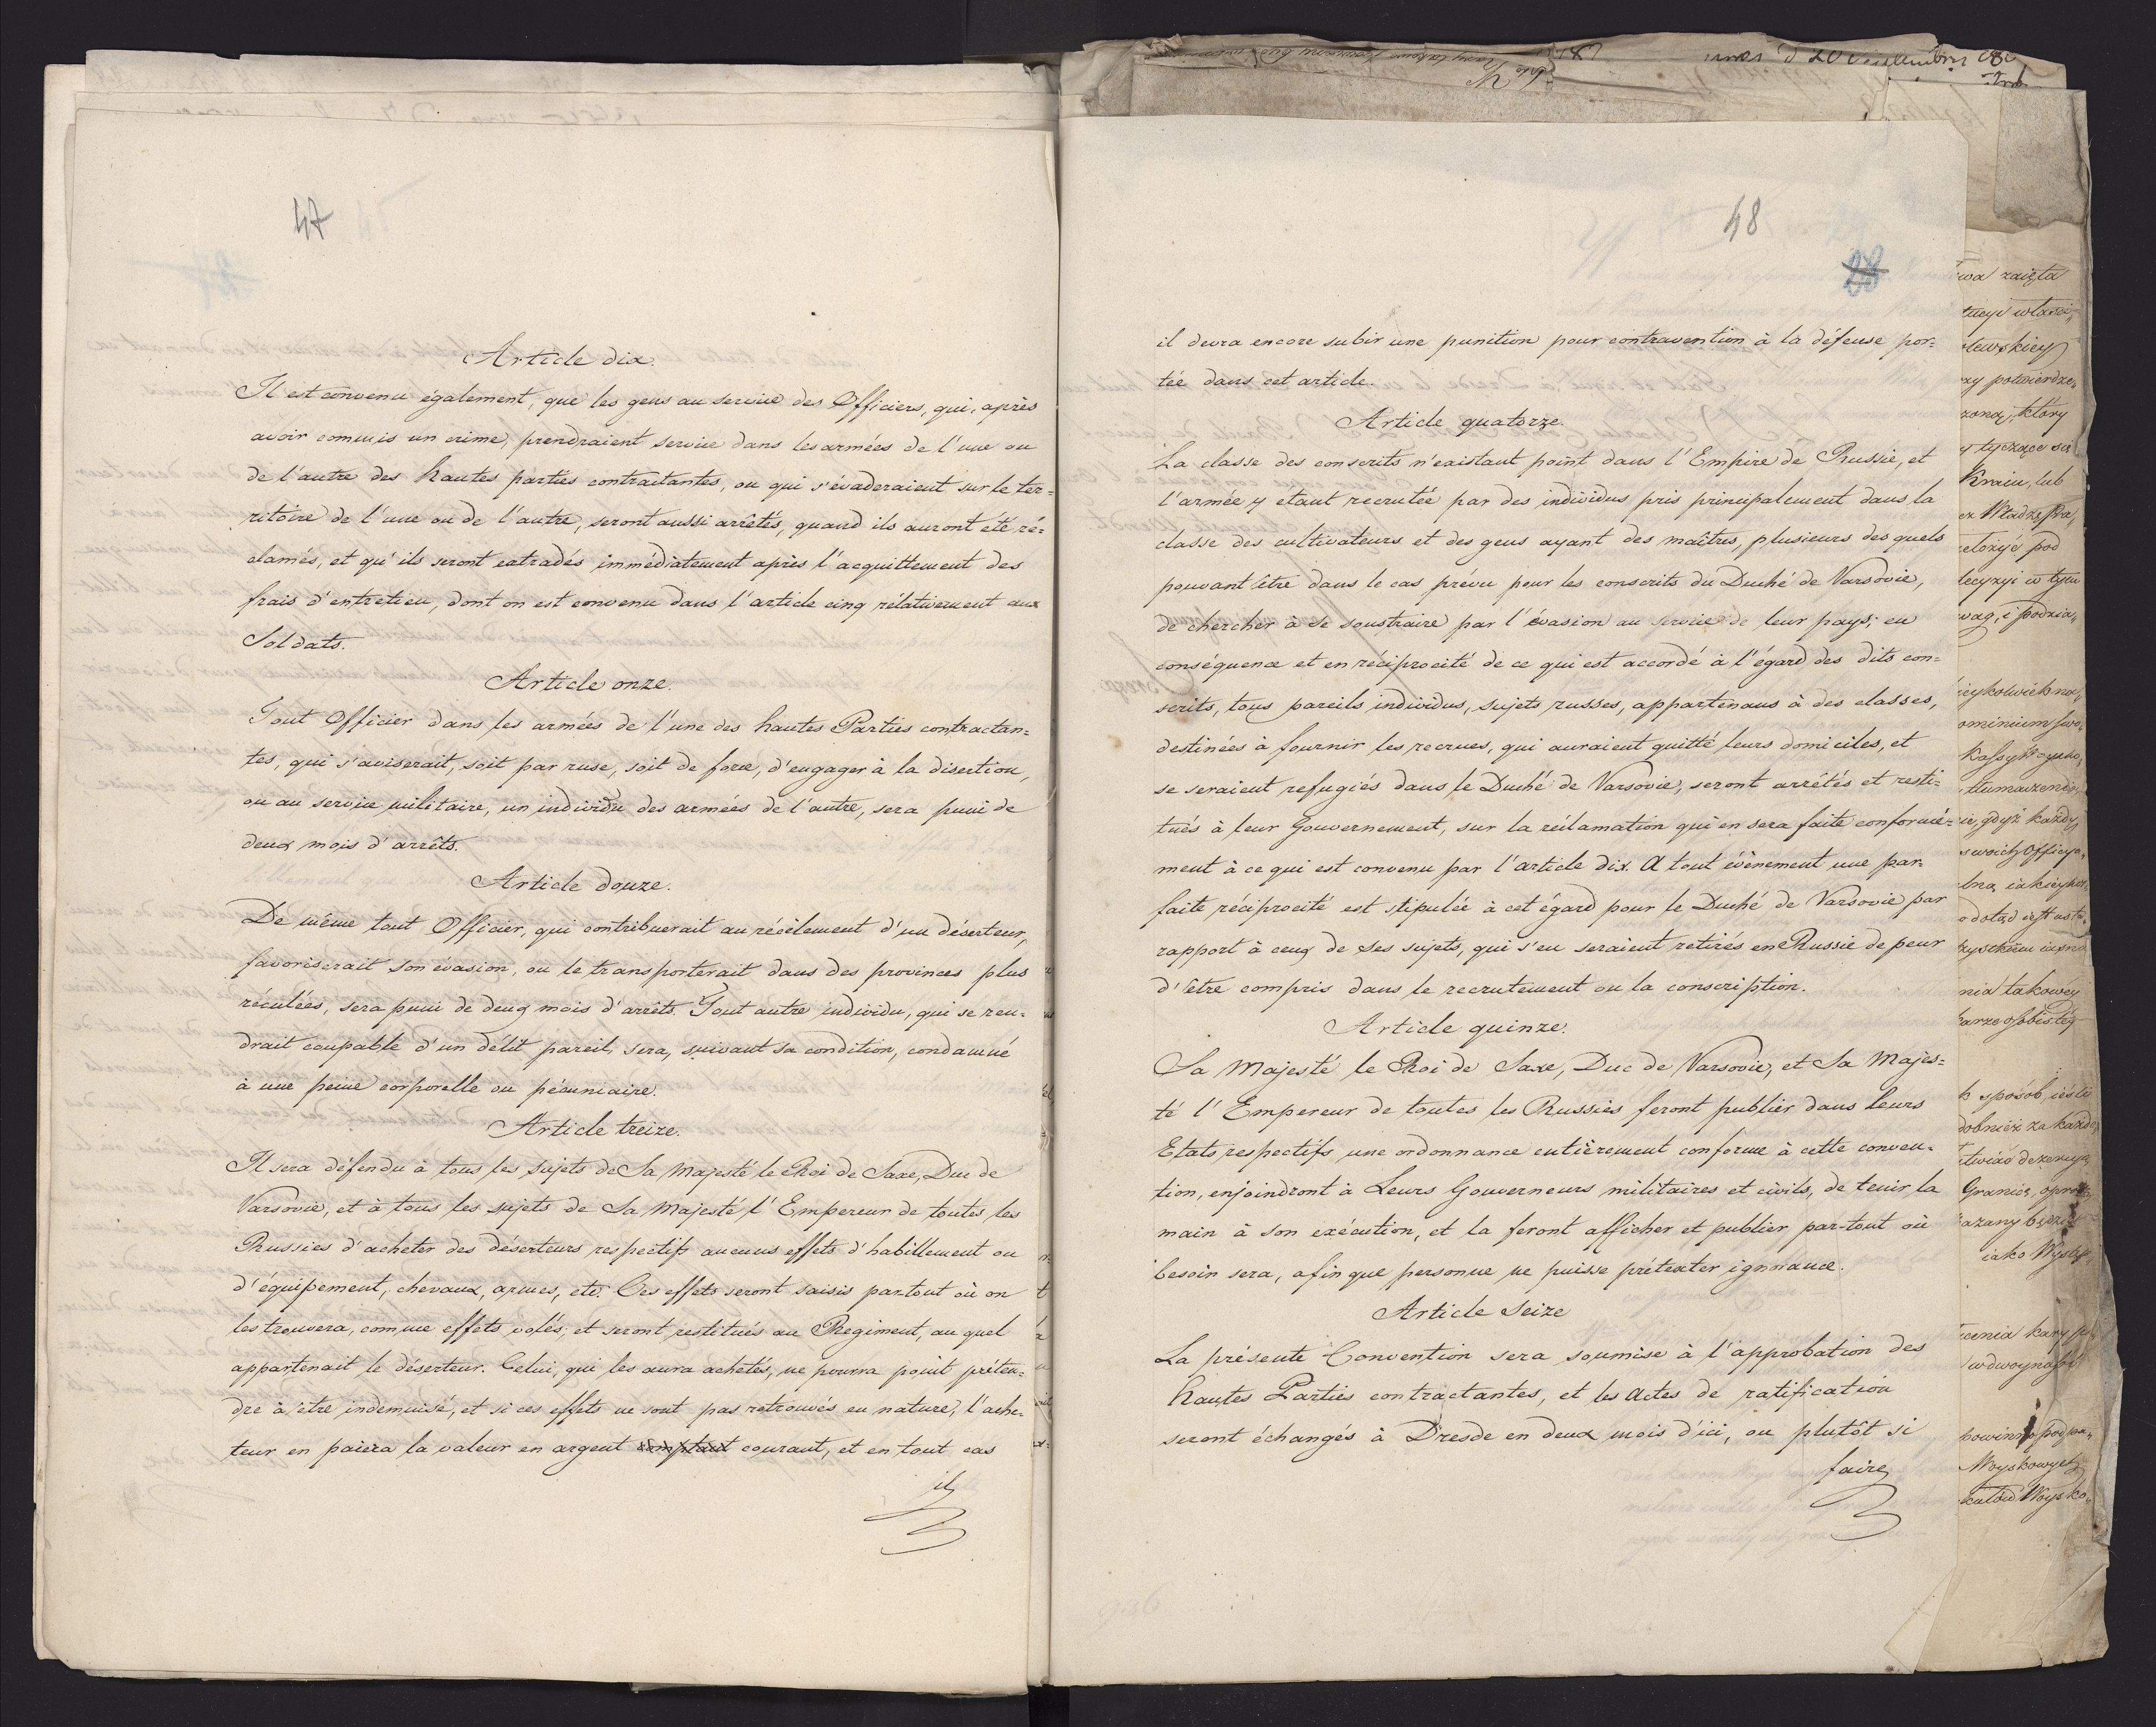 47
Article dix.
Il est convenu également, que les gens au service des Officiers, qui, après
avoir commis un crime, prendraient service dans les armées de l'une ou
de l'autre des hautes parties contraitantes, ou qui s'évaderaient sur le ter=
ritoire de l'une ou de l'autre, seront aussi arrêtés, quand ils auront été ré=
clamés, et qu'ils seront extradés immédiatement après l'acquittement des
frais d'entretien, dont on est convenu dans l'article cinq rélativement aux
Soldats.
Article onze.
Tout Officier dans les armées de l'une des hautes Parties contractan=
tes, qui s'aviserait, soit par ruse, soit de force, d'engager à la disertion,
ou au service militaire, un individu des armées de l'autre, sera puni de
deux mois d'arrêts.
Article douze.
De même tout Officier, qui contribuerait au récélement d'un déserteur,
favoriserait son évasion, ou le transporterait dans des provinces plus
réculées, sera puni de deux mois d'arrêts. Tout autre individu, qui se ren=
drait coupable d'un délit pareil, sera, suivant sa condition, condamné
à une peine corporelle ou pécuniaire.
Article treize.
Il sera défendu à tous les sujets de Sa Majesté le Roi de Saxe, Duc de
Varsovie, et à tous les sujets de Sa Majesté l'Empereur de toutes les
Russies d'acheter des déserteurs respectifs aucuns effets d'habillement ou
d'équipement, chevaux, armes, etc. Ces effets seront saisis par-tout où on
les trouvera, comme effets volés, et seront restitués au Regiment, au quel
appartenait le déserteur. Celui, qui les aura achetés, ne pourra point préten=
dre à être indemnisé, et si ces effets ne sont pas retrouvés en nature, l'ache=
teur en paiera la valeur en argent comptant courant, et en tout cas
il
48
28
il devra encore subir une punition pour contravention à la défense por=
tée dans cet article.
Article quatorze.
La classe des conscrits n'existant point dans l'Empire de Russie, et
l'armée y étant recrutée par des individus pris principalement dans la
classe des cultivateurs et des gens ayant des maîtres, plusieurs des quels
pouvant être dans le cas prévu pour les conscrits du Duché de Varsovie,
de chercher à se soustraire par l'évasion au service de leur pays; en
conséquence et en réciprocité de ce qui est accordé à l'égard des dits con=
scrits, tous pareils individus, sujets russes, appartenans à des classes,
destinées à fournir les recrues, qui auraient quitté leurs domiciles, et
se seraient refugiés dans le Duché de Varsovie, seront arrêtés et resti=
tués à leur Gouvernement, sur la réclamation qui en sera faite conformé=
ment à ce qui est convenu par l'article dix. A tout évènement une par=
faite réciprocité est stipulée à cet égard pour le Duché de Varsovie par
rapport à ceux de ses sujets, qui s'en seraient retirés en Russie de peur
d'être compris dans le recrutement ou la conscription.
Article quinze.
Sa Majesté le Roi de Saxe, Duc de Varsovie, et Sa Majes=
té l'Empereur de toutes les Russies feront publier dans leurs
Etats respectifs une ordonnance entièrement conforme à cette conven=
tion, enjoindront à Leurs Gouverneurs militaires et civils, de tenir la
main à son exécution, et la feront afficher et publier par-tout où
besoin sera, afin que personne ne puisse prétexter ignorance.
Article Seize
La présente Convention sera soumise à l'approbation des
hautes Parties contractantes, et les Actes de ratification
seront échangés à Dresde en deux mois d'ici, ou plutôt si
faire